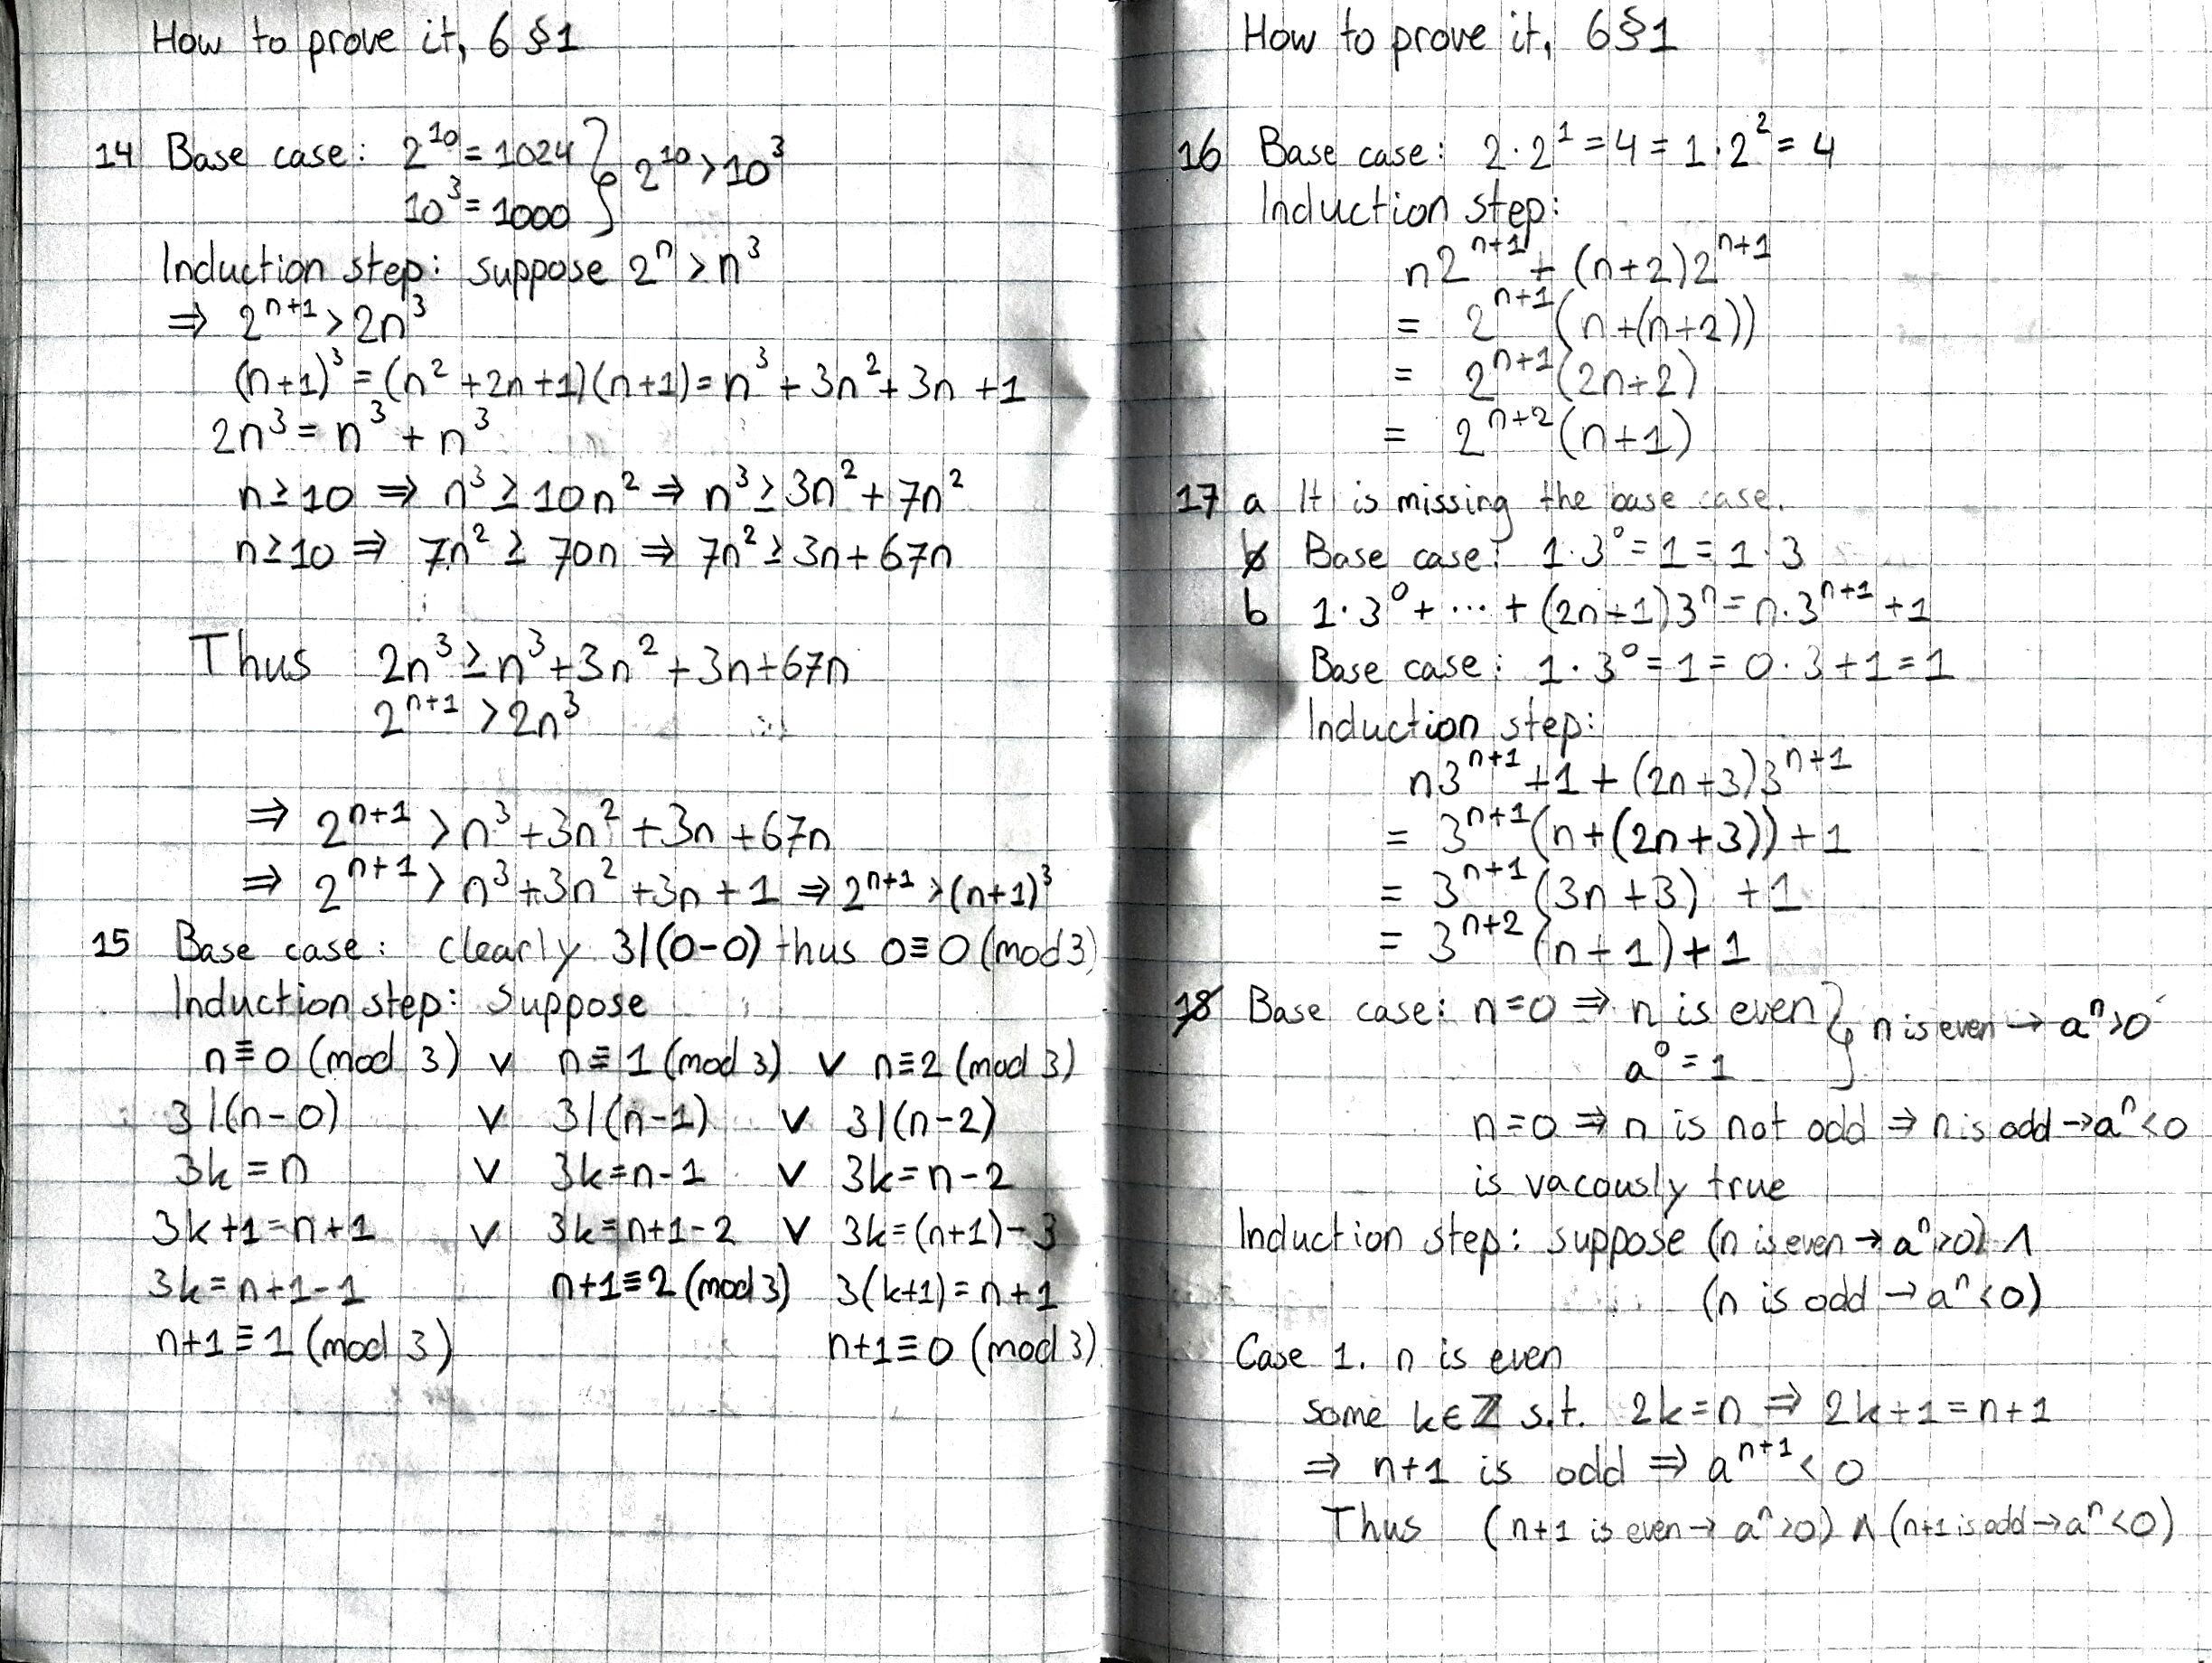 How to prove it, 6 §1
14 Base case: 2^10 = 1024 } 2^10 > 10^3
10^3 = 1000
Induction step: suppose 2^n > n^3
⇒ 2^(n+1) > 2n^3
(n+1)^3 = (n^2 + 2n + 1)(n+1) = n^3 + 3n^2 + 3n + 1
2n^3 = n^3 + n^3
n ≥ 10 ⇒ n^3 ≥ 10n^2 ⇒ n^3 ≥ 3n^2 + 7n^2
n ≥ 10 ⇒ 7n^2 ≥ 70n ⇒ 7n^2 ≥ 3n + 67n
Thus 2n^3 ≥ n^3 + 3n^2 + 3n + 67n
2^(n+1) > 2n^3
⇒ 2^(n+1) > n^3 + 3n^2 + 3n + 67n
⇒ 2^(n+1) > n^3 + 3n^2 + 3n + 1 ⇒ 2^(n+1) > (n+1)^3
15 Base case: clearly 3|(0-0) thus 0 ≡ 0 (mod 3)
Induction step: suppose
n ≡ 0 (mod 3) ∨ n ≡ 1 (mod 3) ∨ n ≡ 2 (mod 3)
3|(n-0) ∨ 3|(n-1) ∨ 3|(n-2)
3k = n ∨ 3k = n-1 ∨ 3k = n-2
3k+1 = n+1 ∨ 3k = n+1-2 ∨ 3k = (n+1)-3
3k = n+1-1 n+1 ≡ 2 (mod 3) 3(k+1) = n+1
n+1 ≡ 1 (mod 3) n+1 ≡ 0 (mod 3)
How to prove it, 6§1
16 Base case: 2·2^1 = 4 = 1·2^2 = 4
Induction step:
n2^(n+1) + (n+2)2^(n+1)
= 2^(n+1)(n+(n+2))
= 2^(n+1)(2n+2)
= 2^(n+2)(n+1)
17 a It is missing the base case.
b Base case: 1·3^0 = 1 = 1·3
b 1·3^0 + ... + (2n+1)3^n = n·3^(n+1) + 1
Base case: 1·3^0 = 1 = 0·3 + 1 = 1
Induction step:
n3^(n+1) + 1 + (2n+3)3^(n+1)
= 3^(n+1)(n+(2n+3)) + 1
= 3^(n+1)(3n+3) + 1
= 3^(n+2)(n+1) + 1
18 Base case: n=0 ⇒ n is even } n is even → a^n > 0
a^0 = 1
n=0 ⇒ n is not odd ⇒ n is odd → a^n < 0
is vacously true
Induction step: suppose (n is even → a^n > 0) ∧
(n is odd → a^n < 0)
Case 1. n is even
some k ∈ ℤ s.t. 2k = n ⇒ 2k+1 = n+1
⇒ n+1 is odd ⇒ a^(n+1) < 0
Thus (n+1 is even → a^n > 0) ∧ (n+1 is odd → a^n < 0)